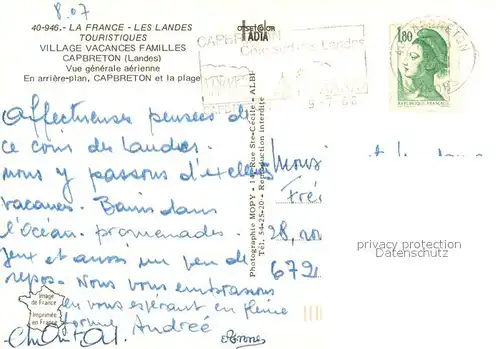 8.07
40-946.- LA FRANCE - LES LANDES
TOURISTIQUES
VILLAGE VACANCES FAMILLES
CAPBRETON (Landes)
Vue générale aérienne
En arrière-plan, CAPBRETON et la plage
IADIA
CAPBRETON
Côte sud des Landes
9-7 86
1,80
REPUBLIQUE FRANÇAISE
CAPBRETON
Photographie MOPY - 14, Rue Ste-Cécile - ALBI
Tél. 54-25-20 - Reproduction interdite
Affectueuses pensées de
ce coin des Landes.
nous y passons d'excllentes
vacances. Bains dans
l'océan. promenades.
Jeux et aussi un peu de
repos. Nous vous embrassons
en vous espérant en pleine
forme
Chantal Andrée
Monsi et
Frè
28, rue
672
privacy protection
Datenschutz
Image
de France
Imprimée
en France